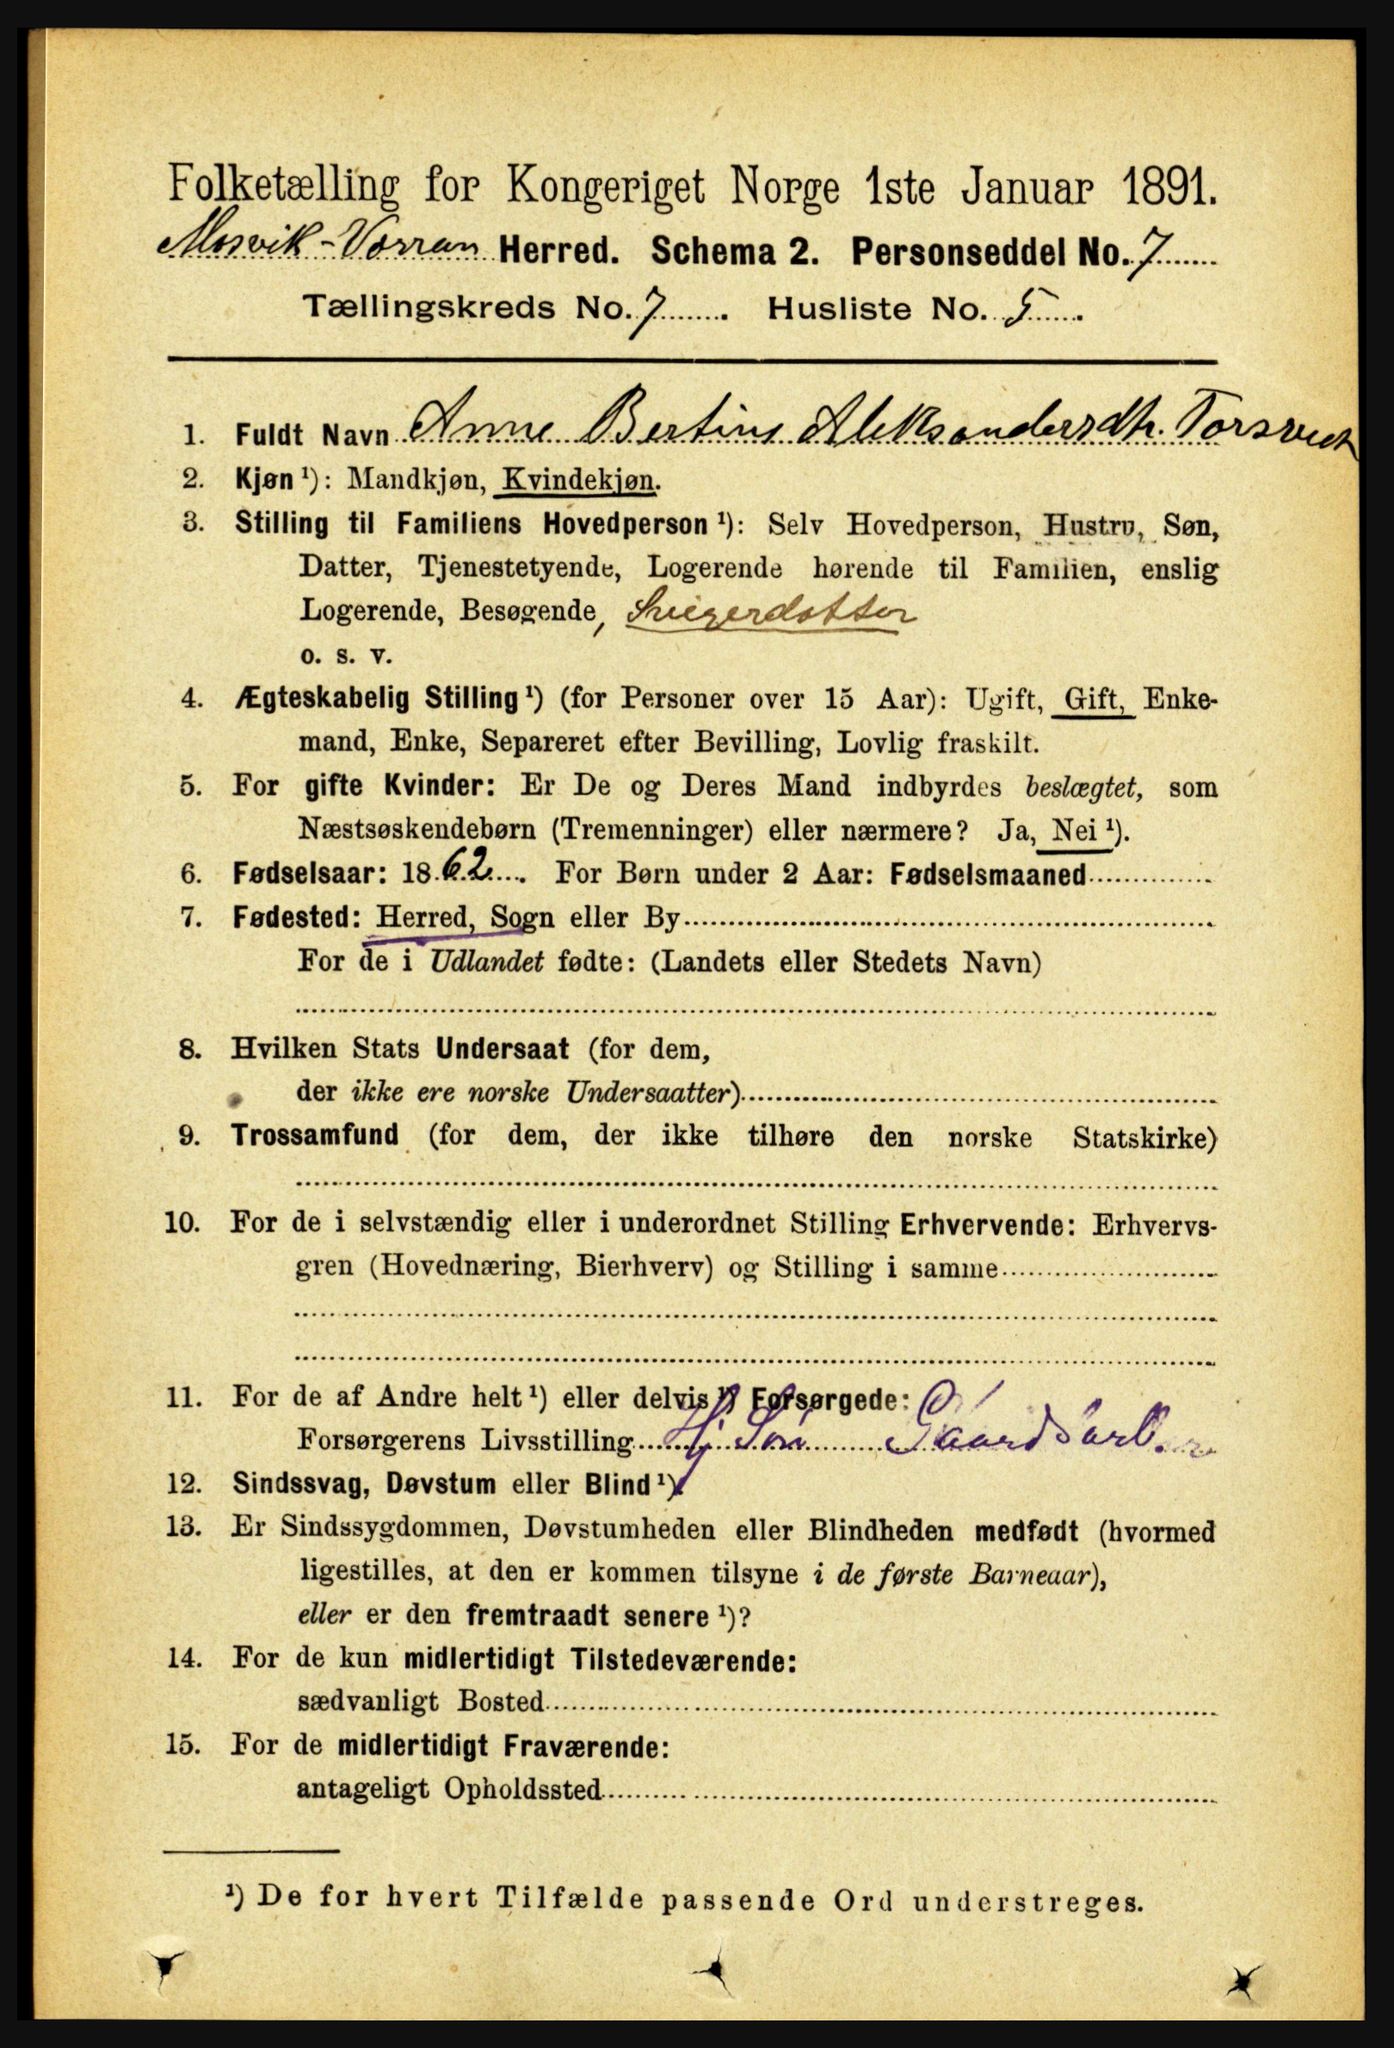 Folketælling for Kongeriget Norge 1ste Januar 1891.
Mosvik-Vorran Herred. Schema 2. Personseddel No. 7
Tællingskreds No. 7. Husliste No. 5.
1. Fuldt Navn Anne Bertine Aleksandersdtr. Torsvedt
2. Kjøn ¹): Mandkjøn, Kvindekjøn.
3. Stilling til Familiens Hovedperson ¹): Selv Hovedperson, Hustru, Søn,
Datter, Tjenestetyende, Logerende hørende til Familien, enslig
Logerende, Besøgende, Sviegerdotter
o. s. v.
4. Ægteskabelig Stilling ¹) (for Personer over 15 Aar): Ugift, Gift, Enke-
mand, Enke, Separeret efter Bevilling, Lovlig fraskilt.
5. For gifte Kvinder: Er De og Deres Mand indbyrdes beslægtet, som
Næstsøskendebørn (Tremenninger) eller nærmere? Ja, Nei ¹).
6. Fødselsaar: 1862. For Børn under 2 Aar: Fødselsmaaned
7. Fødested: Herred, Sogn eller By
For de i Udlandet fødte: (Landets eller Stedets Navn)
8. Hvilken Stats Undersaat (for dem,
der ikke ere norske Undersaatter)
9. Trossamfund (for dem, der ikke tilhøre den norske Statskirke)
10. For de i selvstændig eller i underordnet Stilling Erhvervende: Erhvervs-
gren (Hovednæring, Bierhverv) og Stilling i samme
11. For de af Andre helt ¹) eller delvis ¹) Forsørgede:
Forsørgerens Livsstilling Hj Søn Gaardbarber
12. Sindssvag, Døvstum eller Blind ¹).
13. Er Sindssygdommen, Døvstumheden eller Blindheden medfødt (hvormed
ligestilles, at den er kommen tilsyne i de første Barneaar),
eller er den fremtraadt senere ¹)?
14. For de kun midlertidigt Tilstedeværende:
sædvanligt Bosted
15. For de midlertidigt Fraværende:
antageligt Opholdssted
¹) De for hvert Tilfælde passende Ord understreges.